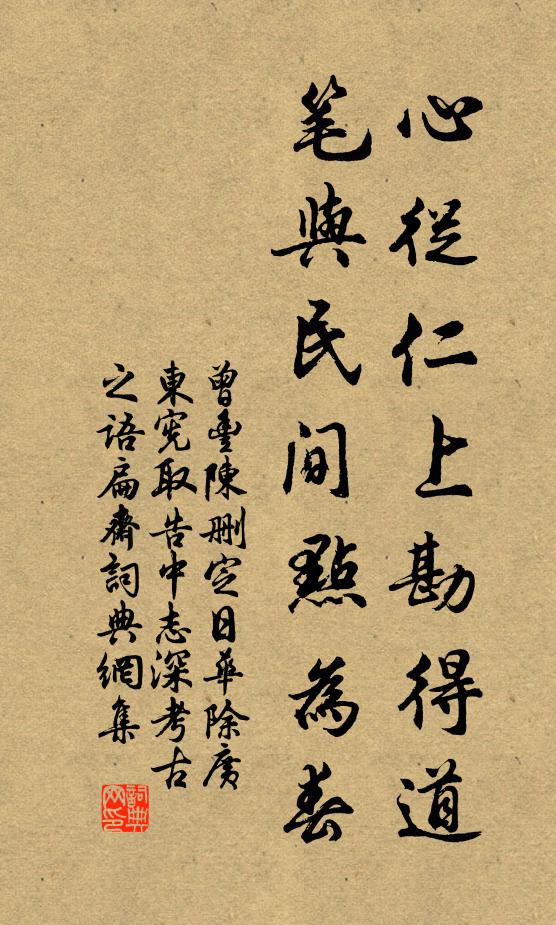 心從仁上勘得道
笔與民間點為春
曾豊陳刪定日華除廣
東宪取告中志深考古
之語扁齋詞典網集
詞典网印